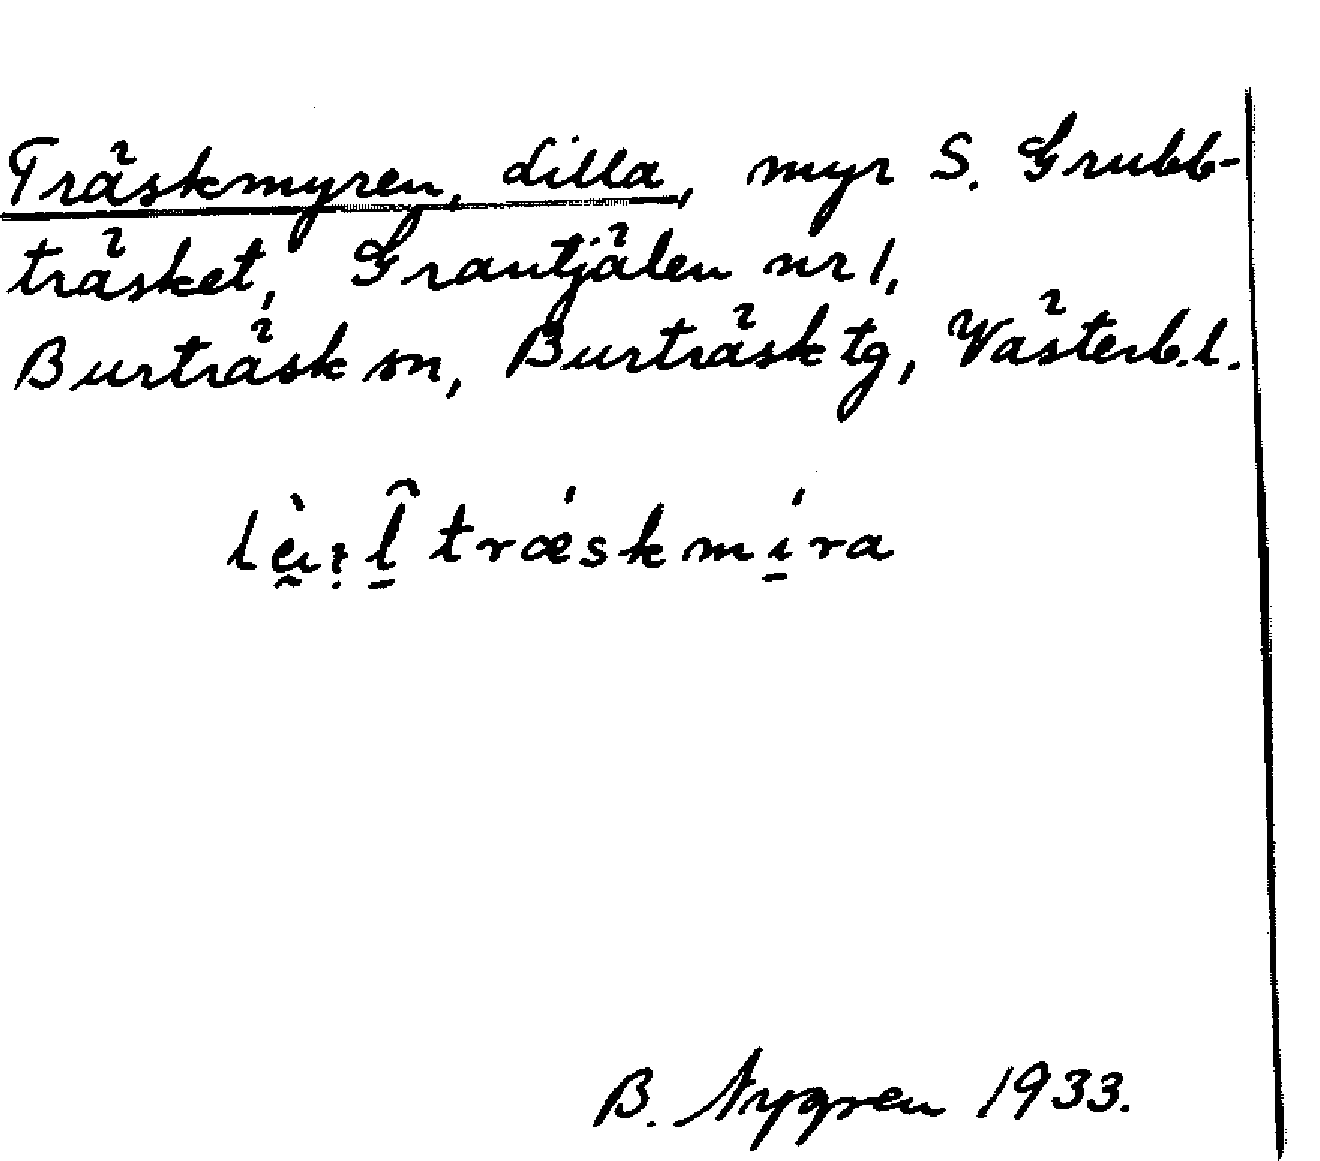 Träskmyren, Lilla, myr S. Grubb-
träsket, Grantjälen nr 1,
Burträsk sn, Burträsk tg, Västerb. l.
træskmira
B. Nygren 1933.